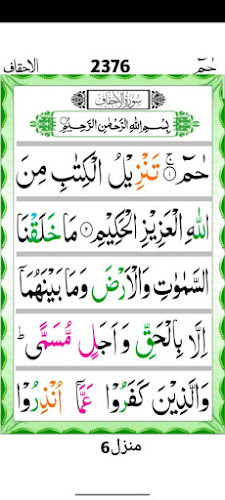 الاحقاف 2376 حٰمٓ
سُوْرَةُ الْاَحْقَافِ
بِسْمِ اللّٰهِ الرَّحْمٰنِ الرَّحِيْمِ
حٰمٓ ۚ‏۱ تَنْزِيْلُ الْكِتٰبِ مِنَ
اللّٰهِ الْعَزِيْزِ الْحَكِيْمِ ۲ مَا خَلَقْنَا
السَّمٰوٰتِ وَالْاَرْضَ وَمَا بَيْنَهُمَاۤ
اِلَّا بِالْحَقِّ وَاَجَلٍ مُّسَمًّى ؕ
وَالَّذِيْنَ كَفَرُوْا عَمَّاۤ اُنْذِرُوْا
منزل 6